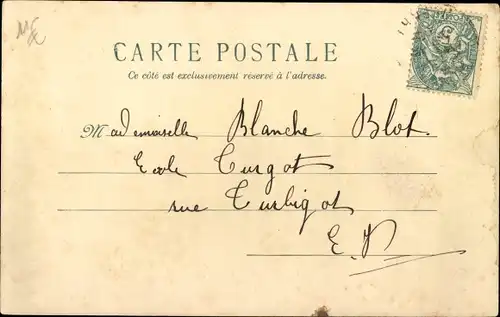 CARTE POSTALE
Ce côté est exclusivement réservé à l'adresse.
Mademoiselle Blanche Blot
Ecole Turgot
rue Turbigot
E. V.